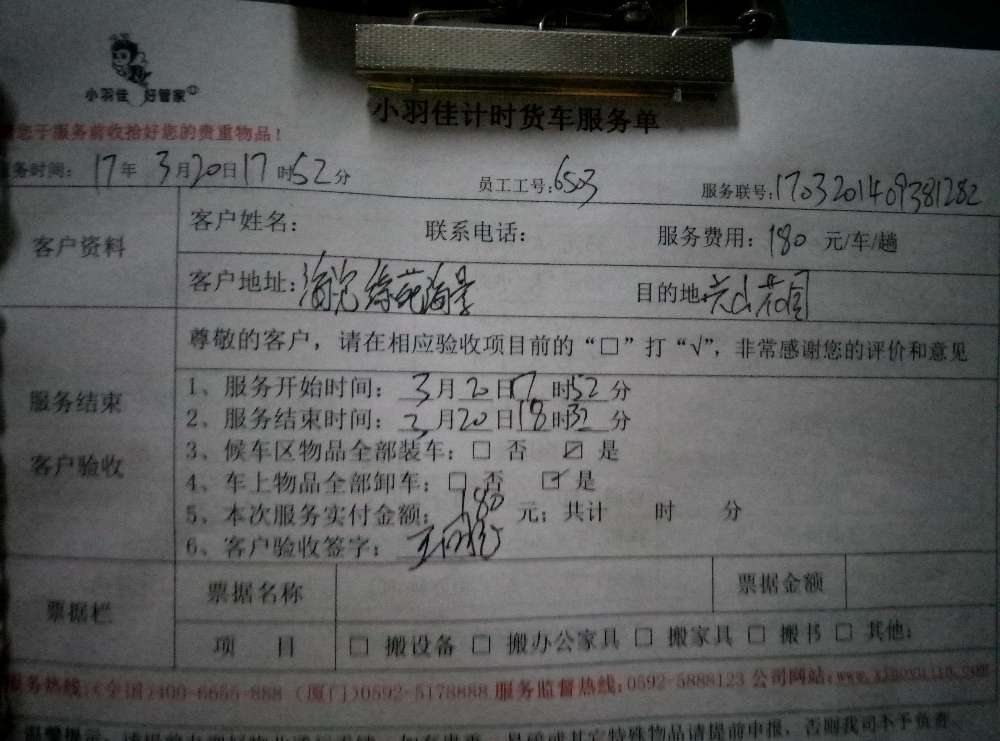 小羽佳 好管家
小羽佳计时货车服务单
您于服务前收拾好您的贵重物品！
服务时间: 17年 3月20日17时52分 员工工号:6503 服务联号:1703201409381282
客户资料
客户姓名: 联系电话: 服务费用: 180 元/车/趟
客户地址: 海景 目的地: 花园
尊敬的客户，请在相应验收项目前的“□”打“√”，非常感谢您的评价和意见
服务结束
客户验收
1、服务开始时间: 3月20日17时52分
2、服务结束时间: 3月20日18时32分
3、候车区物品全部装车: □ 否 ☑ 是
4、车上物品全部卸车: □ 否 ☑ 是
5、本次服务实付金额: 180 元; 共计 时 分
6、客户验收签字:
票据栏
票据名称 票据金额
项 目 □ 搬设备 □ 搬办公家具 □ 搬家具 □ 搬书 □ 其他:
服务热线:(全国)400-6655-888 (厦门)0592-5178888 服务监督热线:0592-5888123 公司网站:www.xiaoyujia.com
温馨提示: 其它特殊物品请提前申报，否则我司不予负责